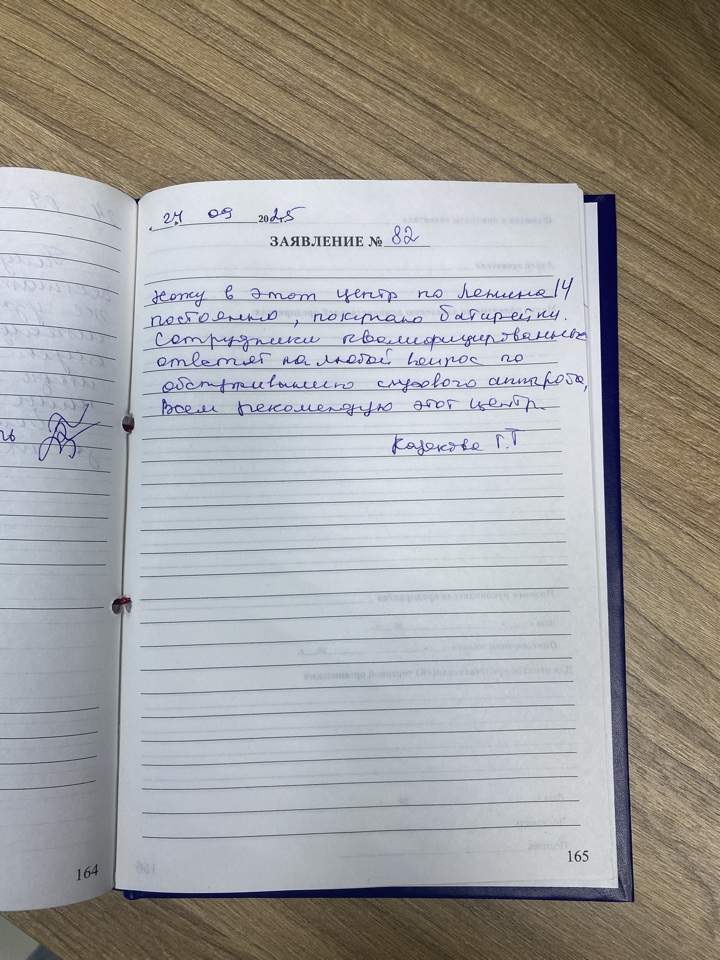 24 09 2025
ЗАЯВЛЕНИЕ № 82
Хожу в этот центр по Ленина 14
постоянно, покупаю батарейки.
Сотрудники квалифицированные
ответят на любой вопрос по
обслуживанию слухового аппарата,
Всем рекомендую этот центр.
Казакова Г.Т
164
165